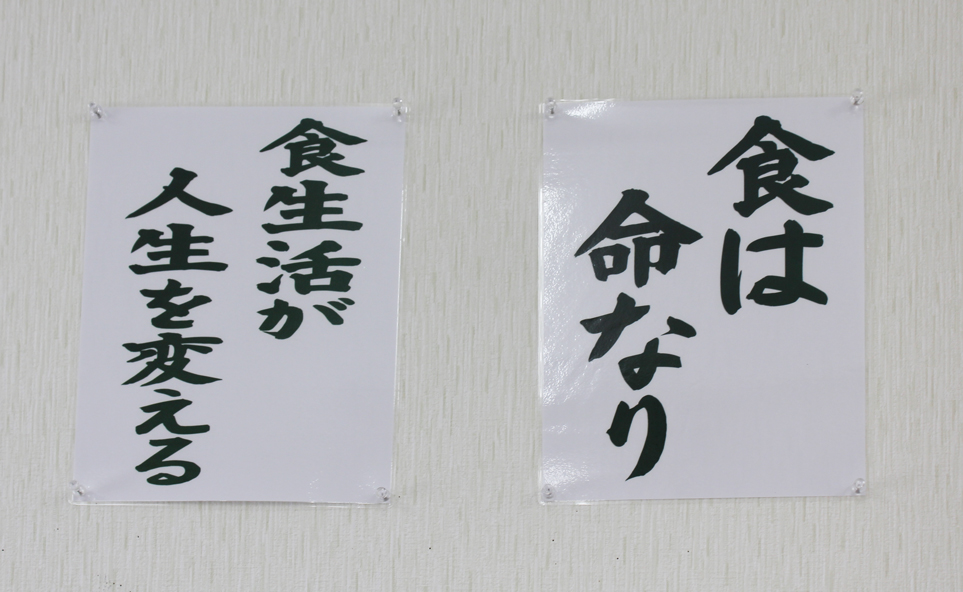 食は
命なり
食生活が
人生を変える